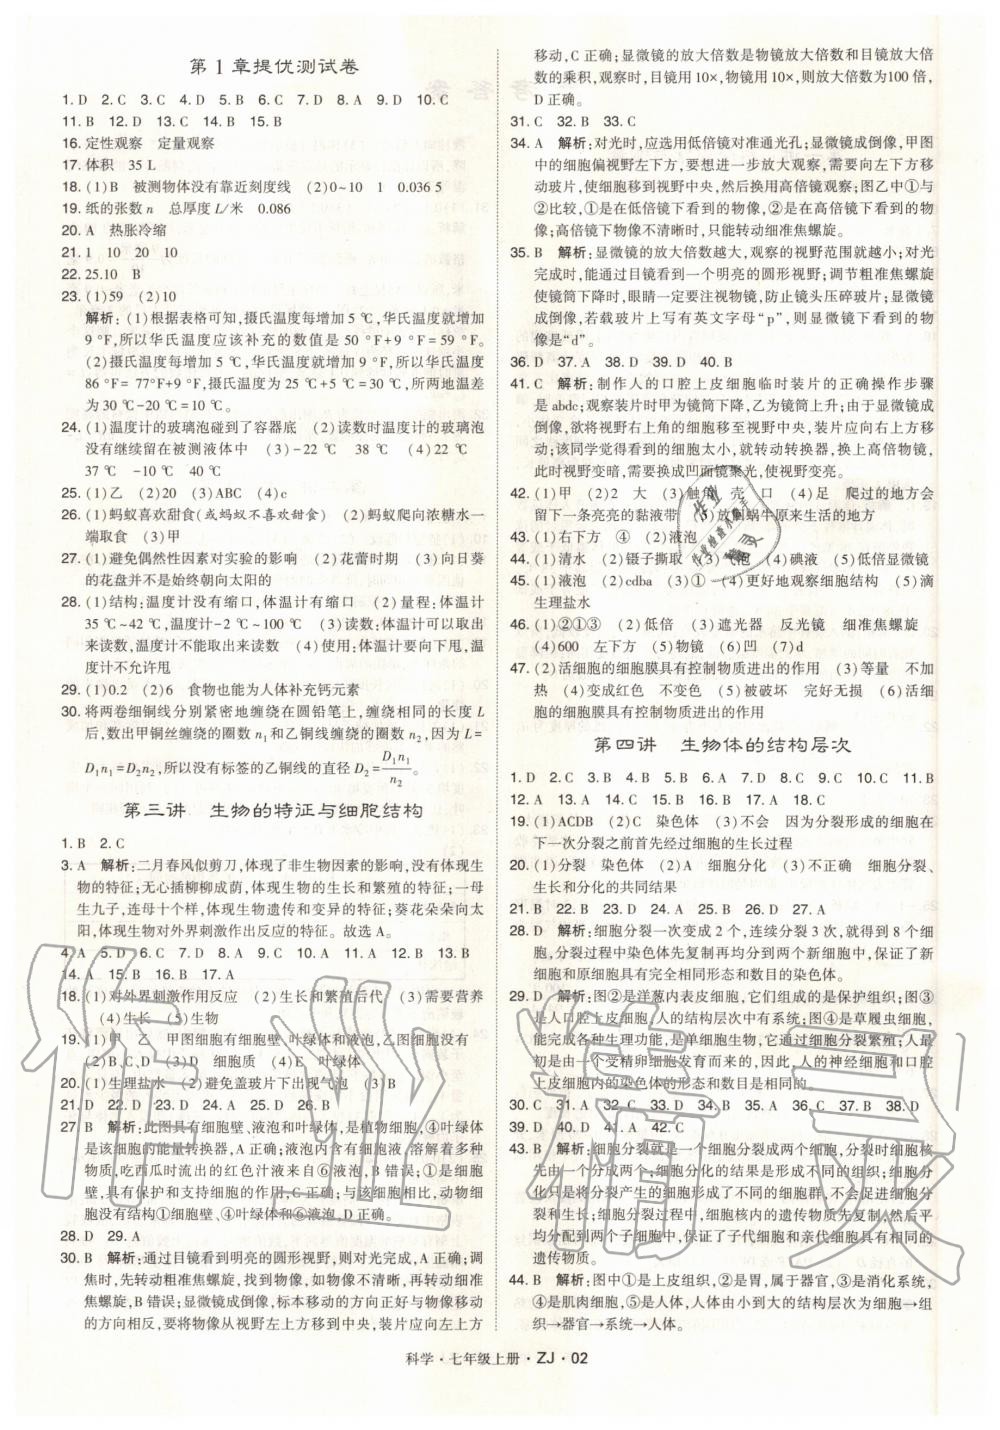 第1章提优测试卷
1. D 2. C 3. C 4. D 5. B 6. C 7. D 8. A 9. D 10. C
11. B 12. D 13. C 14. B 15. B
16. 定性观察 定量观察
17. 体积 35 L
18. (1)B 被测物体没有靠近刻度线 (2)0~10 1 0.036 5
19. 纸的张数 n 总厚度 L/米 0.086
20. A 热胀冷缩
21. 1 10 20 10
22. 25.10 B
23. (1)59 (2)10
解析:(1)根据表格可知,摄氏温度每增加5 ℃,华氏温度就增加
9 ℉,所以华氏温度应该补充的数值是 50 ℉+9 ℉=59 ℉。
(2)摄氏温度每增加5 ℃,华氏温度就增加9 ℉,所以华氏温度
86 ℉= 77℉+9 ℉,摄氏温度为25 ℃+5 ℃=30 ℃,所两地温差
为30 ℃-20 ℃=10 ℃。
24. (1)温度计的玻璃泡碰到了容器底 (2)读数时温度计的玻璃泡
没有继续留在被测液体中 (3)-22 ℃ 38 ℃ (4)-22 ℃
37 ℃ -10 ℃ 40 ℃
25. (1)乙 (2)20 (3)ABC (4)c
26. (1)蚂蚁喜欢甜食(或蚂蚁不喜欢甜食) (2)蚂蚁爬向浓糖水一
端取食 (3)甲
27. (1)避免偶然性因素对实验的影响 (2)花蕾时期 (3)向日葵
的花盘并不是始终朝向太阳的
28. (1)结构:温度计没有缩口,体温计有缩口 (2)量程:体温计
35 ℃~42 ℃,温度计-2 ℃~100 ℃ (3)读数:体温计可以取出
来读数,温度计不能取出来读数 (4)使用:体温计要向下甩,温
度计不允许甩
29. (1)0.2 (2)6 食物也能为人体补充钙元素
30. 将两卷细铜线分别紧密地缠绕在圆铅笔上,缠绕相同的长度 L
后,数出甲铜丝缠绕的圈数 n₁和乙铜线缠绕的圈数 n₂,因为 L=
D₁n₁=D₂n₂,所以没有标签的乙铜线的直径 D₂=D₁n₁/n₂。
第三讲 生物的特征与细胞结构
1. B 2. C
3. A 解析:二月春风似剪刀,体现了非生物因素的影响,没有体现生
物的特征;无心插柳柳成荫,体现生物的生长和繁殖的特征;一母
生九子,连母十个样,体现生物遗传和变异的特征;葵花朵朵向太
阳,体现生物对外界刺激作出反应的特征。故选 A。
4. A 5. D 6. C 7. D 8. A 9. C 10. A 11. A 12. B 13. B
14. A 15. B 16. B 17. A
18. (1)对外界刺激作用反应 (2)生长和繁殖后代 (3)需要营养
(4)生长 (5)生物
19. (1)甲 乙 甲图细胞有细胞壁、叶绿体和液泡,乙图细胞没有
(2)B、C、D (3)D 细胞质 (4)E 叶绿体
20. (1)生理盐水 (2)避免盖玻片下出现气泡 (3)B
21. D 22. D 23. D 24. A 25. D 26. B
27. B 解析:此图具有细胞壁、液泡和叶绿体,是植物细胞,④叶绿体
是该细胞的能量转换器,A 正确;液泡内含有细胞液,溶解着多种
物质,吃西瓜时流出的红色汁液来自⑥液泡,B 错误;①是细胞
壁,具有保护和支持细胞的作用,C 正确;与该细胞相比,动物细
胞没有结构①细胞壁、④叶绿体和⑥液泡,D 正确。
28. D 29. A
30. B 解析:通过目镜看到明亮的圆形视野,则对光完成,A 正确;调
焦时,先转动粗准焦螺旋,找到物像,如物像不清晰,再转动细准
焦螺旋,B 错误;显微镜成倒像,标本移动的方向正好与物像移动
的方向相反,要将物像从视野左上方移到中央,装片应向左上方
移动,C 正确;显微镜的放大倍数是物镜放大倍数和目镜放大倍数
的乘积,观察时,目镜用 10×,物镜用 10×,则放大倍数为100 倍,
D 正确。
31. C 32. B 33. C
34. A 解析:对光时,应选用低倍镜对准通光孔;显微镜成倒像,甲图
中的细胞偏视野左下方,要想进一步放大观察,需要向左下方移
动玻片,使细胞移到视野中央,然后换用高倍镜观察;图乙中①与
②比较,①是在低倍镜下看到的物像,②是在高倍镜下看到的物
像;高倍镜下物像不清晰时,只能转动细准焦螺旋。
35. B 解析:显微镜的放大倍数越大,观察的视野范围就越小;对光
完成时,能通过目镜看到一个明亮的圆形视野;调节粗准焦螺旋
使镜筒下降时,眼睛一定要注视物镜,防止镜头压碎玻片;显微镜
成倒像,若载玻片上写有英文字母“p”,则显微镜下看到的物
像是“d”。
36. D 37. A 38. D 39. D 40. B
41. C 解析:制作人的口腔上皮细胞临时装片的正确操作步骤
是 abdc;观察装片时甲为镜筒下降,乙为镜筒上升;由于显微镜成
倒像,欲将视野右上角的细胞移至视野中央,装片应向右上方移
动;该同学觉得看到的细胞太小,就转动转换器,换上高倍物镜,
此时视野变暗,需要换成凹面镜聚光,使视野变亮。
42. (1)甲 (2)2 大 (3)触角 壳 口 (4)足 爬过的地方会
留下一条亮亮的黏液带 (5)放回蜗牛原来生活的地方
43. (1)右下方 ④ (2)液泡
44. (1)清水 (2)镊子撕取 (3)气泡 (4)碘液 (5)低倍显微镜
45. (1)液泡 (2)cdba (3)① (4)更好地观察细胞结构 (5)滴
生理盐水
46. (1)②①③ (2)低倍 (3)遮光器 反光镜 细准焦螺旋
(4)600 左下方 (5)物镜 (6)凹 (7)d
47. (2)活细胞的细胞膜具有控制物质进出的作用 (3)等量 不加
热 (4)变成红色 不变色 (5)被破坏 完好无损 (6)活细
胞的细胞膜具有控制物质进出的作用
第四讲 生物体的结构层次
1. D 2. C 3. B 4. B 5. B 6. A 7. D 8. D 9. C 10. C 11. B
12. A 13. A 14. C 15. C 16. A 17. A 18. C
19. (1)ACDB (2)C 染色体 (3)不会 因为分裂形成的细胞在
下一次分裂之前首先经过细胞的生长过程
20. (1)分裂 染色体 (2)A 细胞分化 (3)不正确 细胞分裂、
生长和分化的共同结果
21. B 22. B 23. D 24. A 25. D 26. D 27. A
28. D 解析:细胞分裂一次变成 2 个,连续分裂 3 次,就得到 8 个细
胞,分裂过程中染色体先复制再均分到两个细胞中,保证了新
细胞和原细胞具有完全相同形态和数目的染色体。
29. D 解析:图②是洋葱内表皮细胞,它们组成的是保护组织;图③
是人口腔上皮细胞,人体的结构层次中有系统;图④是草履虫细胞,
能完成各种生理功能,是单细胞生物,它通过细胞分裂繁殖;人最
初是由一个受精卵细胞发育而来的,因此,人的神经细胞和口腔
上皮细胞内的染色体的形态和数目是相同的。
30. C 31. A 32. C 33. D 34. B 35. C 36. D 37. B 38. D
39. D 40. D 41. A 42. C
43. B 解析:细胞分裂就是一个细胞分裂成两个细胞,分裂时细胞核
先由一个分成两个;细胞分化的结果是形成不同的组织;细胞分
化只是将分裂产生的细胞形成了不同的细胞群,不会引起遗传物
质的改变;细胞分裂时,细胞核内的遗传物质先复制,然后平
均分配到两个子细胞中,保证了子代细胞和亲代细胞具有相同的
遗传物质。
44. B 解析:图中①是上皮组织,②是胃,属于器官,③是消化系统,
④是肌肉细胞,⑤是人体,人体由小到大的结构层次为细胞→组
织→器官→系统→人体。
科学·七年级上册·ZJ·02
作业精灵